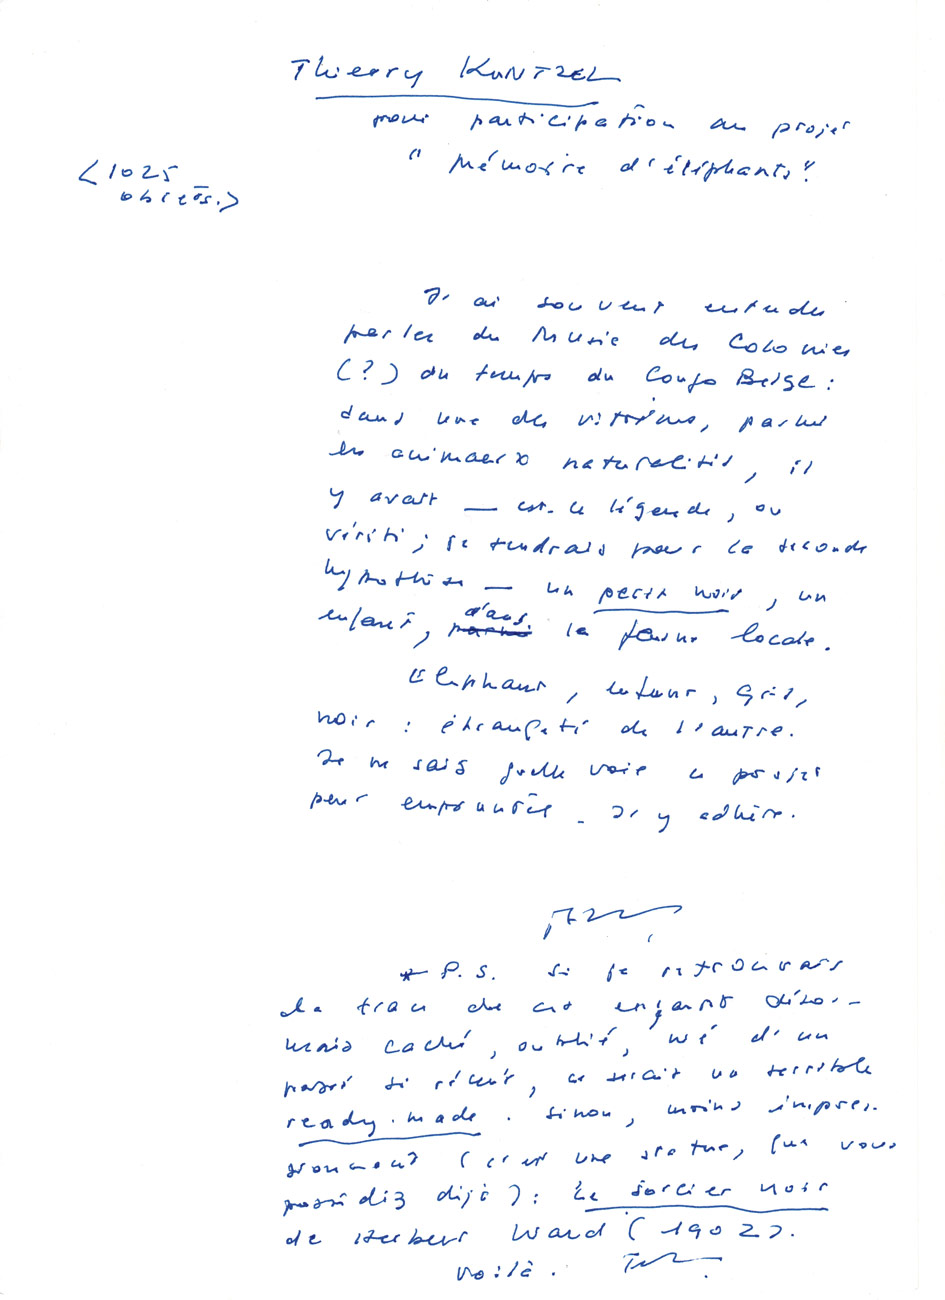 Thierry KUNTZEL
pour participation au projet
"Mémoire d'éléphants"
<1025
objets.>
J'ai souvent entendu
parler du Musée des Colonies
(?) du temps du Congo Belge :
dans une des vitrines, parmi
les animaux naturalisés, il
y avait — est-ce légende, ou
vérité ; je tendrais pour la seconde
hypothèse — un petit noir, un
enfant, parmi dans la faune locale.
Eléphant, enfant, gris,
noir : étrangeté de l'autre.
Je ne sais quelle voie ce projet
peut emprunter. J'y adhère.
* P.S. Si je retrouvais
la trace de cet enfant désor-
mais caché, oublié, né d'un
passé si récent, ce serait un terrible
ready-made. Sinon, moins impres-
sionnant (c'est une statue, que vous
possédez déjà) : Le sorcier noir
de Herbert Ward (1902).
Voilà.